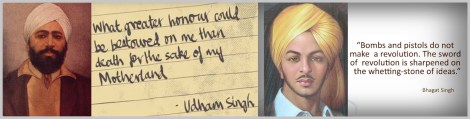 What greater honour could
be bestowed on me than
death for the sake of my
Motherland
- Udham Singh
“Bombs and pistols do not
make a revolution. The sword
of revolution is sharpened on
the whetting-stone of ideas.”
Bhagat Singh